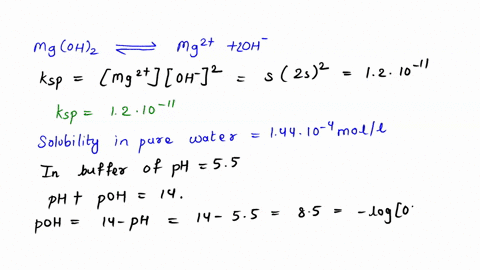 Mg(OH)₂ ⇌ Mg²⁺ + 2OH⁻
Ksp = [Mg²⁺][OH⁻]² = s(2s)² = 1.2·10⁻¹¹
Ksp = 1.2·10⁻¹¹
Solubility in pure water = 1.44·10⁻⁴ mol/l
In buffer of pH = 5.5
pH + pOH = 14.
pOH = 14 - pH = 14 - 5.5 = 8.5 = -log[O